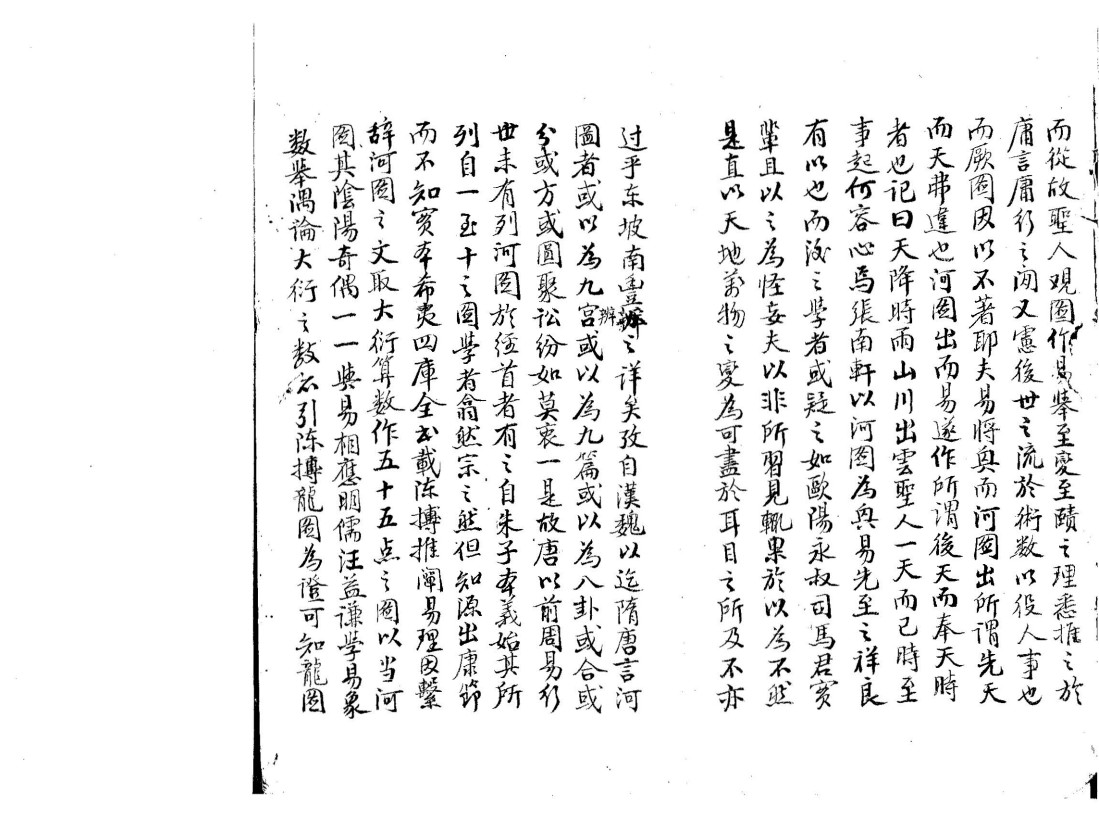 而從故聖人观圖作易舉至變至賾之理悉推之於
庸言庸行之间又慮後世之流於術数以役人事也
而厥圖因以不著耶夫易將興而河圖出所謂先天
而天弗違也河圖出而易遂作所謂後天而奉天時
者也记曰天降時雨山川出雲聖人一天而已時至
事起何容心焉張南軒以河圖為興易先至之祥良
有以也而後之學者或疑之如歐陽永叔司馬君實
輩且以之為怪妄夫以非所習見輒果於以為不然
是直以天地萬物之變為可盡於耳目之所及不亦
过乎东坡南豐辨之详矣攷自漢魏以迄隋唐言河
圖者或以為九宮或以為九篇或以為八卦或合或
分或方或圓聚訟紛如莫衷一是故唐以前周易衍
世未有列河圖於经首者有之自朱子本義始其所
列自一至十之圖學者翕然宗之然但知源出康節
而不知實本希夷四庫全书載陈摶推阐易理因繫
辞河圖之文取大衍算数作五十五点之圖以当河
圖其陰陽奇偶一一與易相應明儒汪益谦學易象
数舉隅論大衍之数亦引陈摶龍圖為證可知龍圖